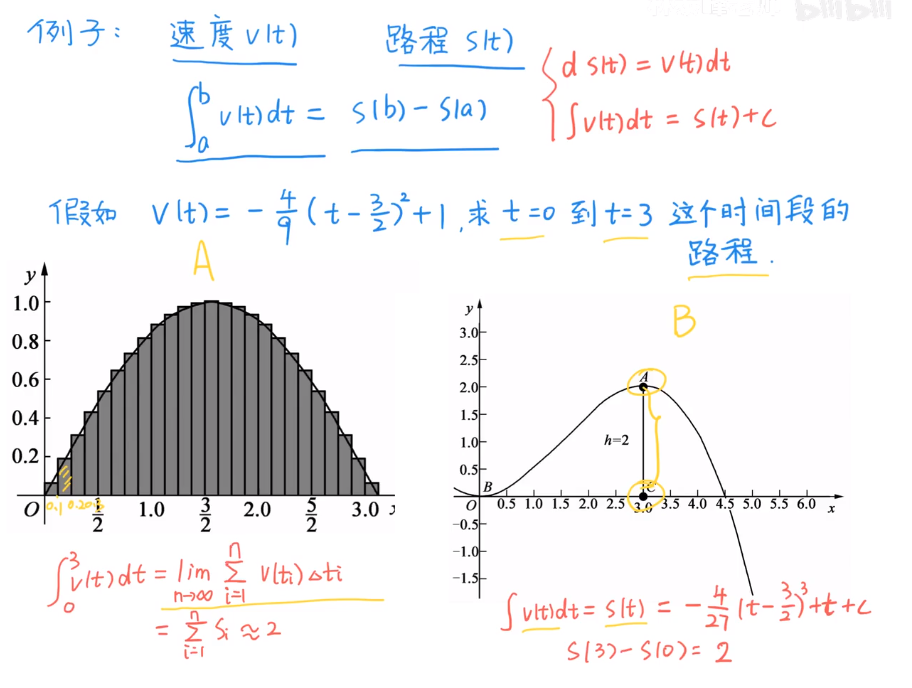 bilibili
例子： 速度 v(t) 路程 s(t)
{ d s(t) = v(t)dt
∫v(t)dt = s(t)+c
∫_a^b v(t)dt = s(b)-s(a)
假如 v(t) = -4/9 (t-3/2)²+1, 求 t=0 到 t=3 这个时间段的
路程.
A
y
1.0
0.8
0.6
0.4
0.2
O 0.1 1/2 1.0 3/2 2.0 5/2 3.0
∫_0^3 v(t)dt = lim_{n→∞} ∑_{i=1}^n v(ti)△ti
= ∑_{i=1}^n Si ≈ 2
B
y
3.0
2.5
2.0 A
1.5
1.0 h=2
0.5
B C
O 0.5 1.0 1.5 2.0 2.5 3.0 3.5 4.0 4.5 5.0 5.5 6.0 x
-0.5
-1.0
-1.5
∫v(t)dt = s(t) = -4/27 (t-3/2)³+t+c
s(3)-s(0) = 2